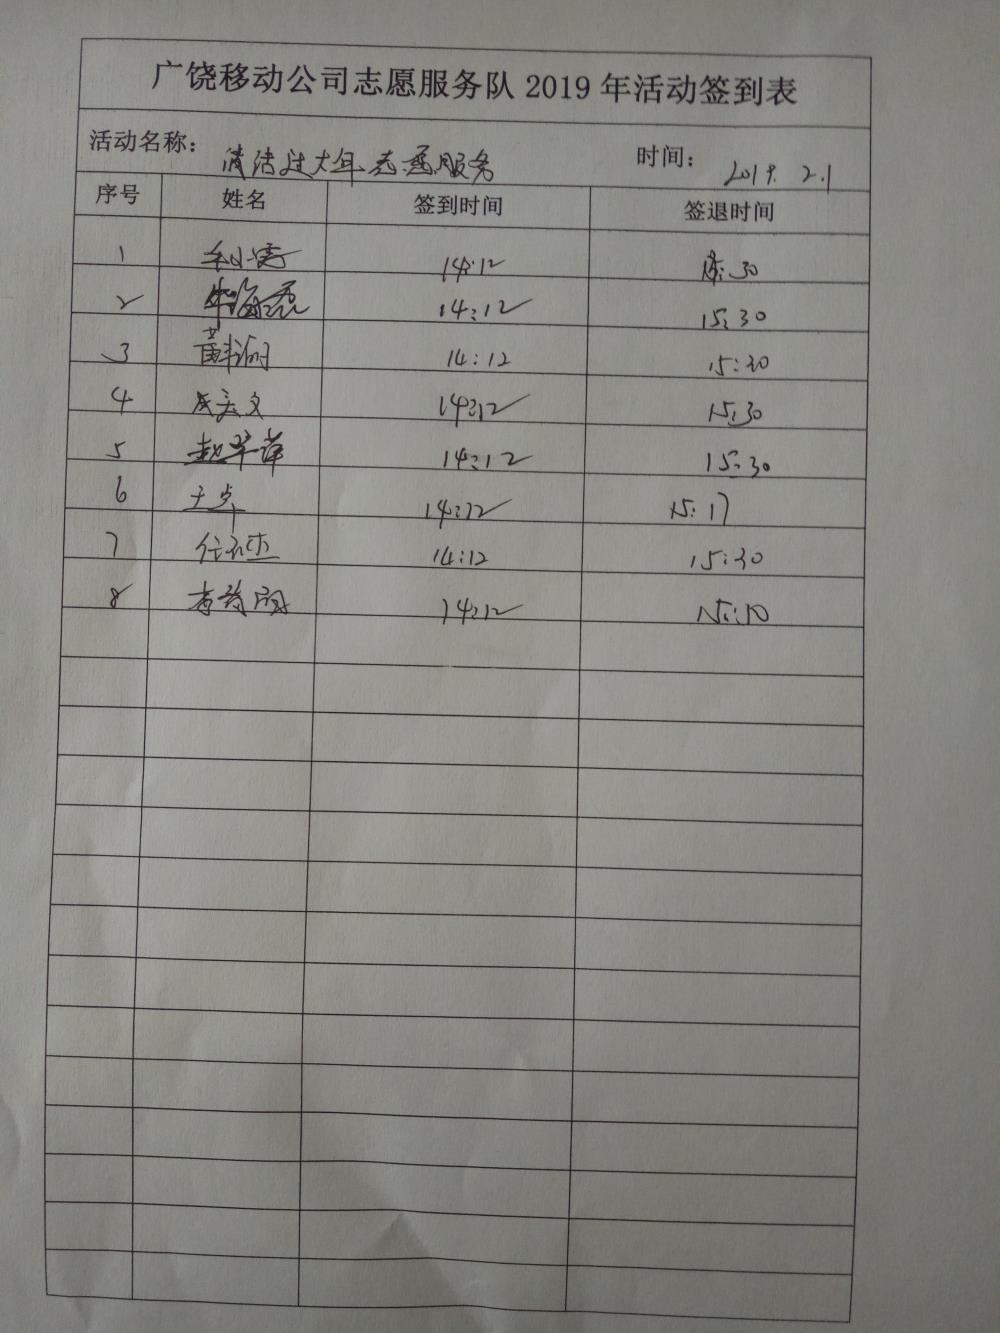 广饶移动公司志愿服务队 2019 年活动签到表
活动名称： 清洁过大年志愿服务 时间： 2019. 2.1
序号 姓名 签到时间 签退时间
1 14:12 15:30
2 14:12 15:30
3 14:12 15:30
4 14:12 15:30
5 赵翠萍 14:12 15:30
6 王卓 14:12 15:17
7 14:12 15:30
8 14:12